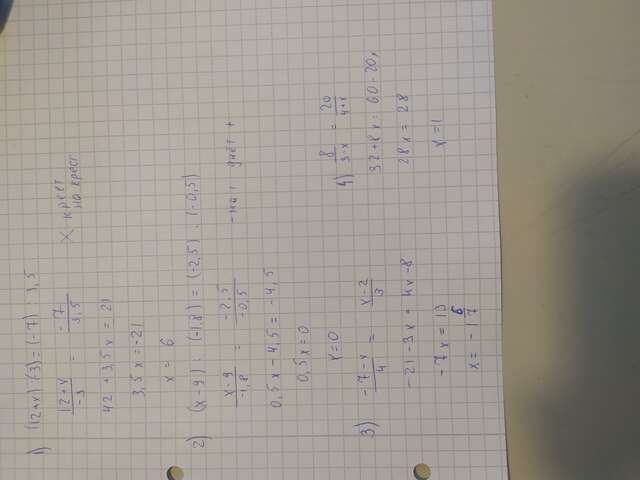 1) (12+x) : (3) = (-7) : 3,5
12+x / -3 = -7 / 3,5
X крест на крест
42 + 3,5x = 21
3,5x = -21
x = 6
2) (x-9) : (-1,8) = (-2,5) : (-0,5)
x-9 / -1,8 = -2,5 / -0,5
- на - даёт +
0,5x - 4,5 = -4,5
0,5x = 0
x = 0
3) -7-x / 4 = x-2 / 3
-21-3x = 4x-8
-7x = 13
x = -1 6/7
4) 8 / 3-x = 20 / 4+x
32+8x = 60-20x
28x = 28
x = 1